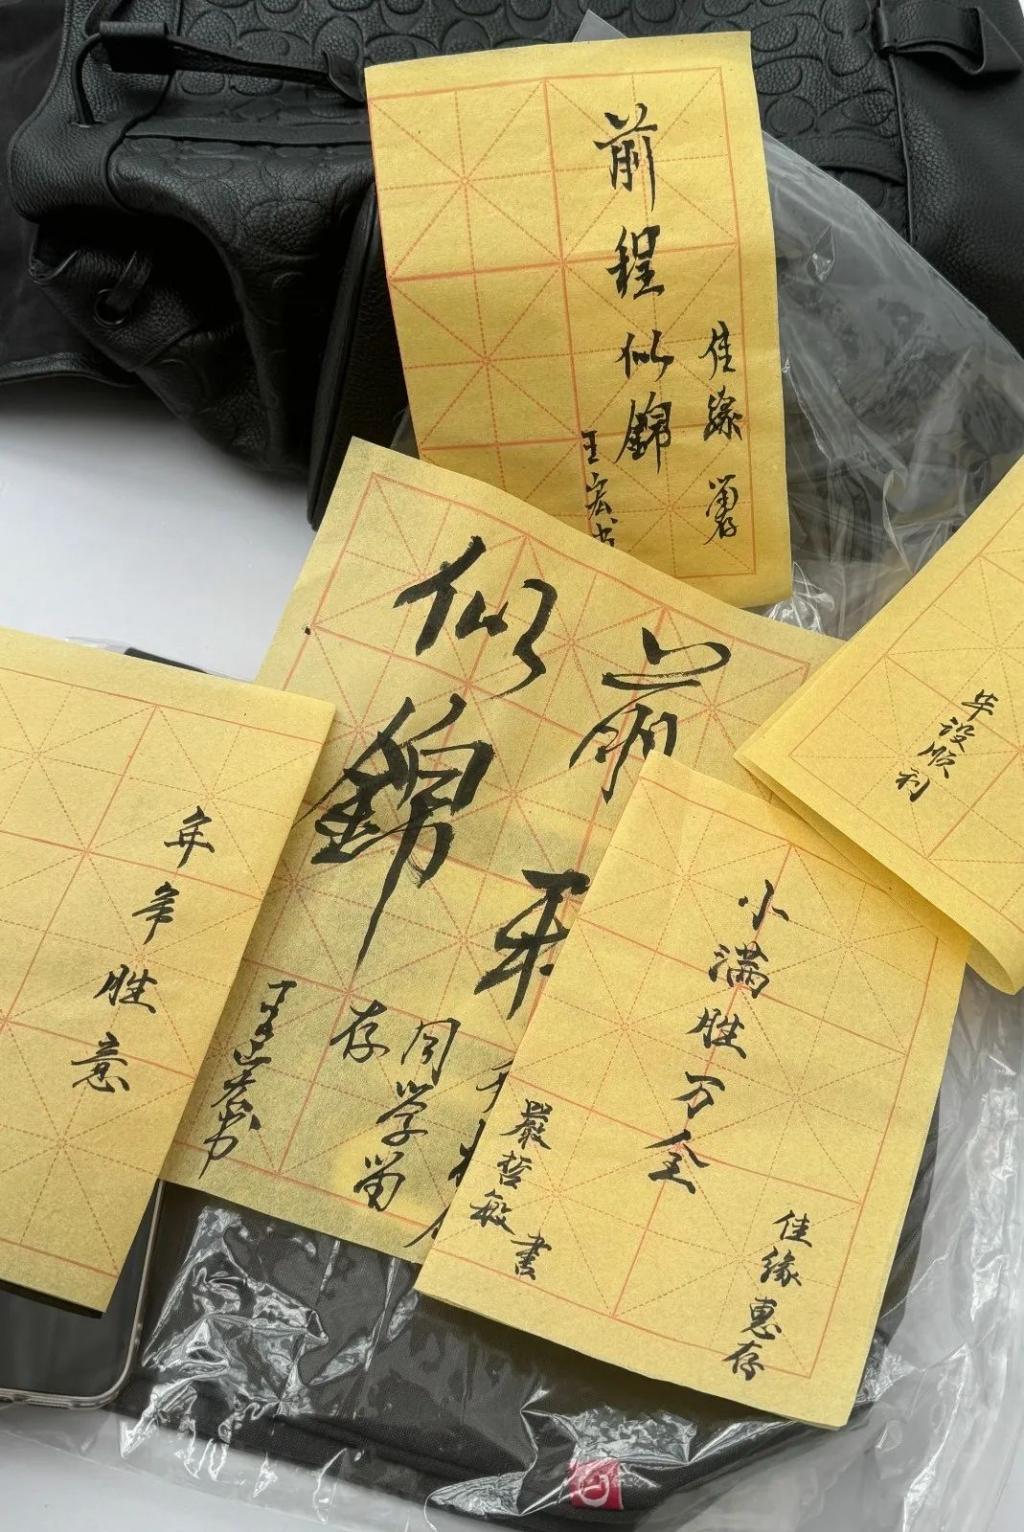 佳緣留存
前程似錦
王宏书
前
似錦
同学留
存
毕设顺利
佳緣惠存
小满胜万全
嚴哲敏書
年年胜意